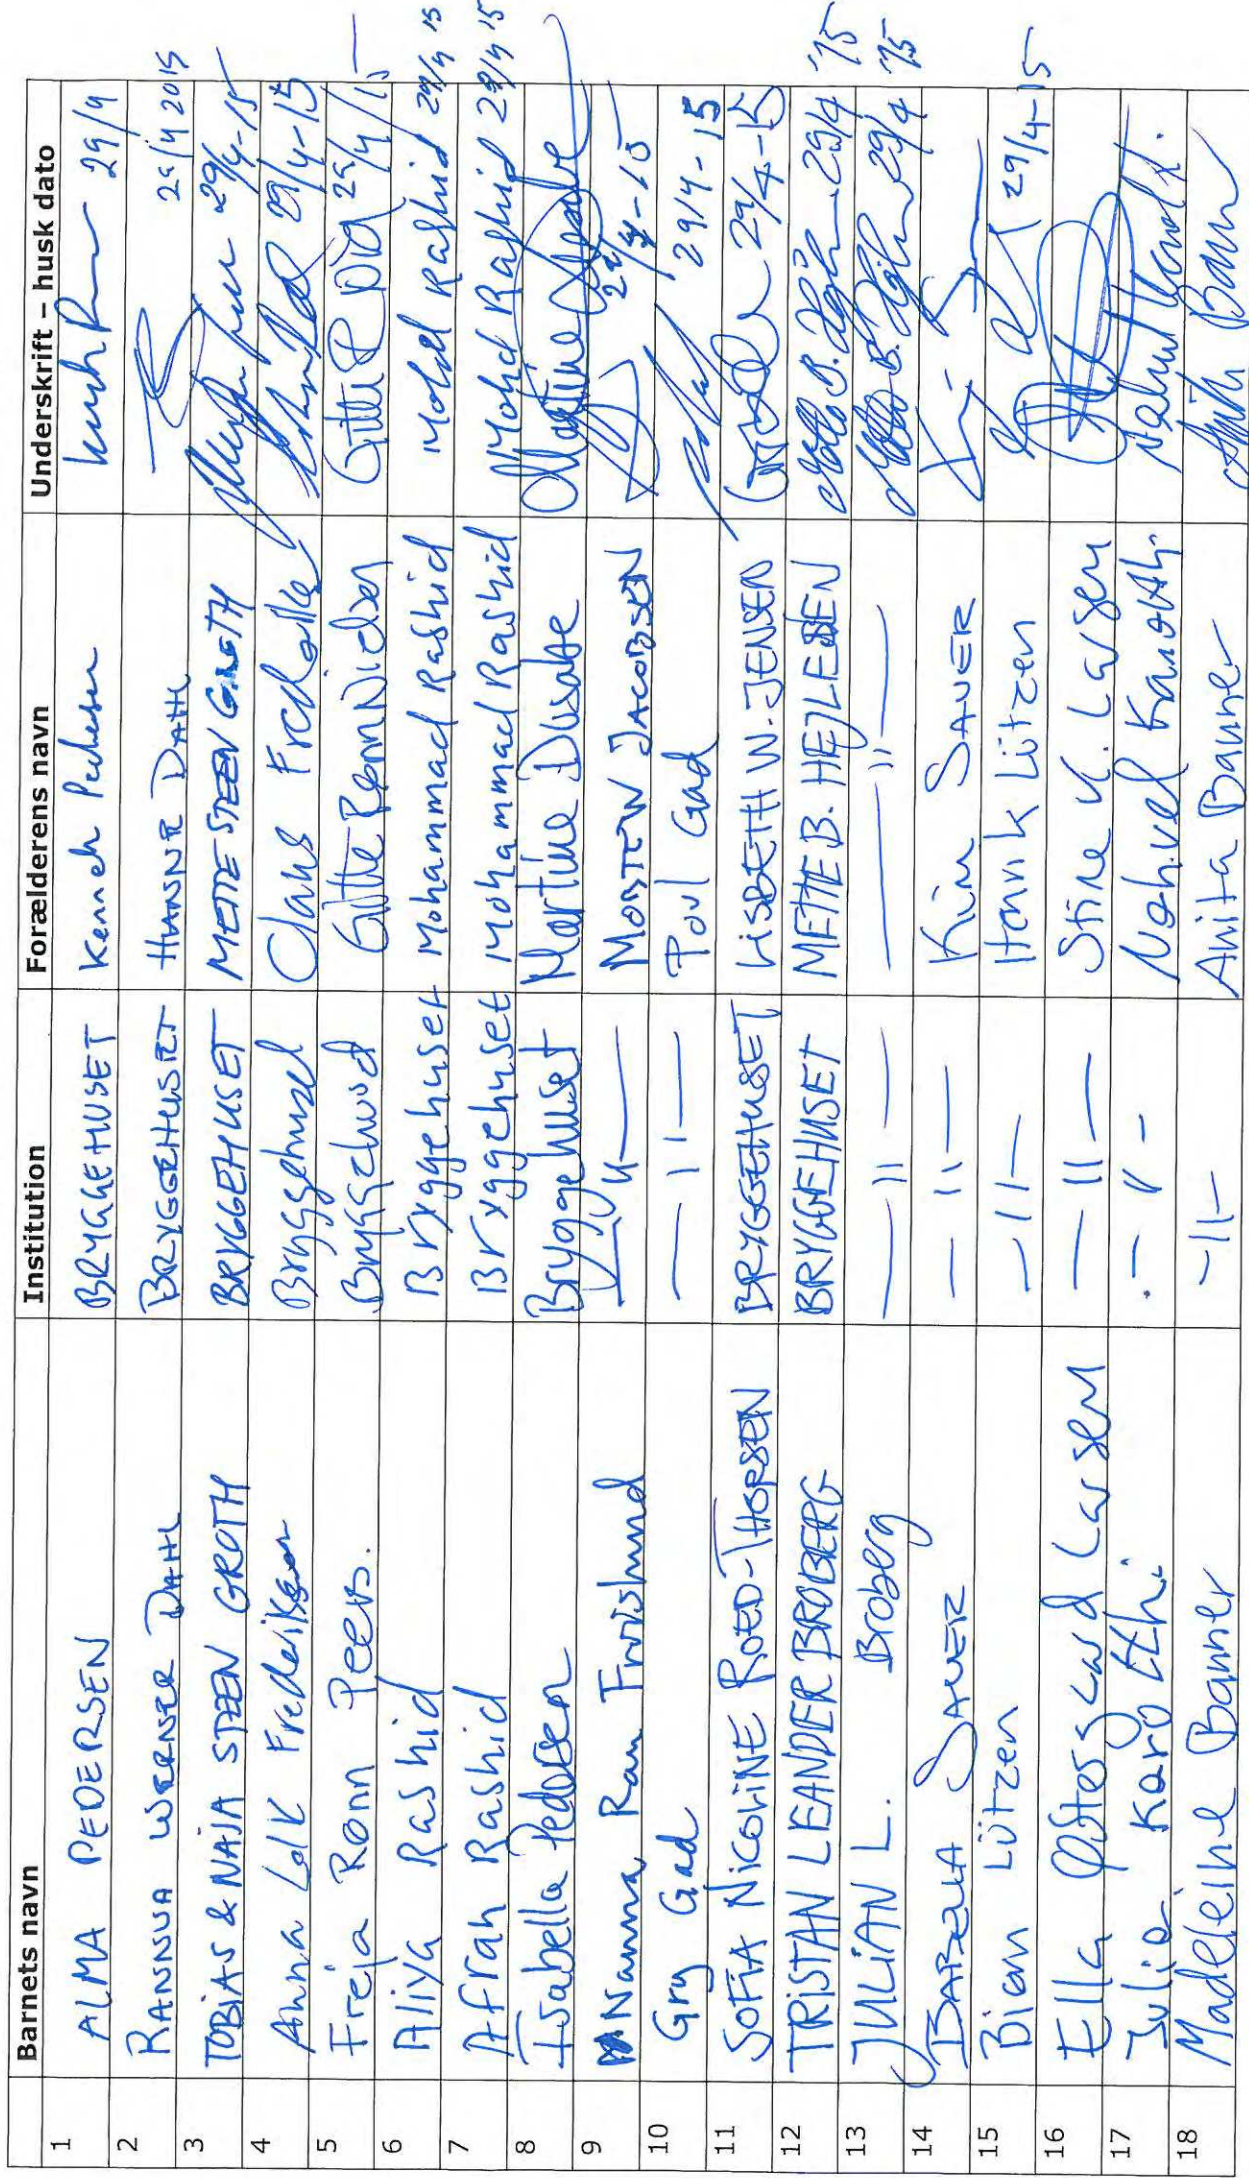 Barnets navn Institution Forælderens navn Underskrift – husk dato
1 ALMA PEDERSEN BRYGGEHUSET Kenneth Pedersen 29/4
2 RANNVA WERNER DAHL BRYGGEHUSET HANNE DAHL 29/4 2015
3 TOBIAS & NAJA STEEN GROTH BRYGGEHUSET METTE STEEN GROTH 29/4-15
4 Anna Falk Frederiksen Bryggehuset Claus 29/4-15
5 Freja Rønn Peers. Bryggehuset Gitte Rønn 29/4/15
6 Aliya Rashid Bryggehuset Mohammad Rashid Mohd Rashid 29/4 15
7 Afrah Rashid Bryggehuset Mohammad Rashid Mohd Rashid 29/4 15
8 Isabella Pedersen Bryggehuset Martine
9 Nanna Ravn —"— MORTEN JACOBSEN 29/4-15
10 Gry Gad —"— Poul Gad 29/4-15
11 SOFIA NICOLINE ROED-THORSEN BRYGGEHUSET LISBETH W. JENSEN 29/4-15
12 TRISTAN LEANDER BROBERG BRYGGEHUSET METTE B. HEJLEBEN 29/4 '15
13 JULIAN L. Broberg —"— —"— 29/4 '15
14 SAUER —"— Kim SAUER
15 Lützen —"— Henrik Lützen 29/4-15
16 Ella Østergaard Larsen —"— Stine K. Larsen
17 Julie —"—
18 Madleine Banner —"— Anita Banner